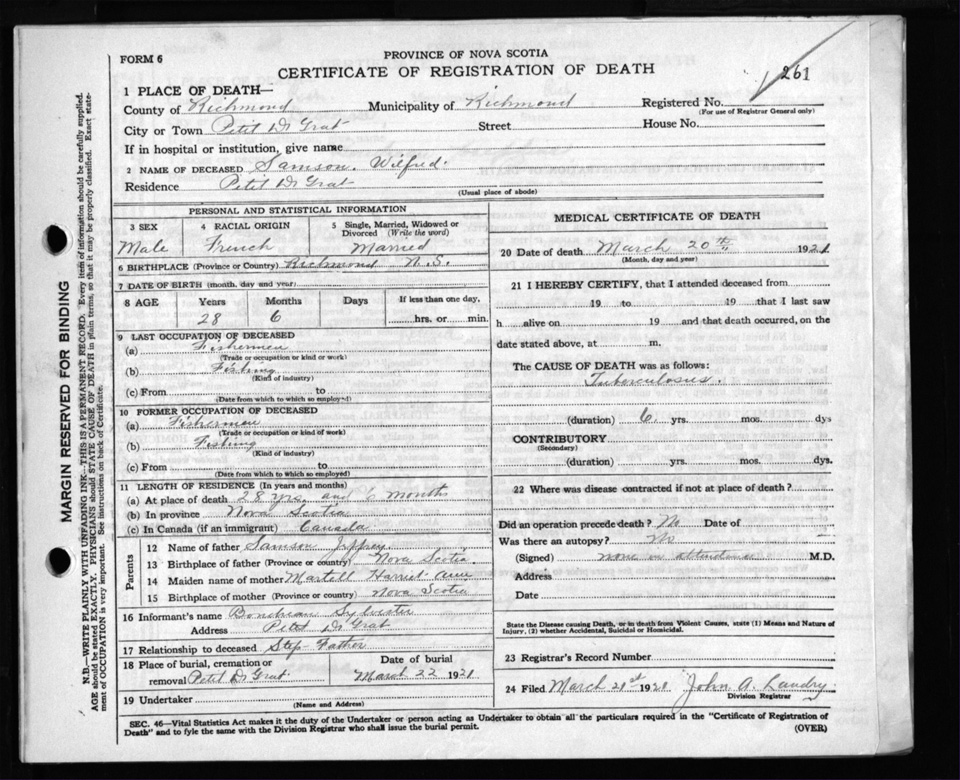 FORM 6
PROVINCE OF NOVA SCOTIA
CERTIFICATE OF REGISTRATION OF DEATH
261
1 PLACE OF DEATH—
County of Richmond Municipality of Richmond Registered No.
(For use of Registrar General only)
City or Town Petit De Grat Street House No.
If in hospital or institution, give name
2 NAME OF DECEASED Samson. Wilfred.
Residence Petit De Grat
(Usual place of abode)
MARGIN RESERVED FOR BINDING
N.B.—WRITE PLAINLY WITH UNFADING INK—THIS IS A PERMANENT RECORD. Every item of information should be carefully supplied.
AGE should be stated EXACTLY. PHYSICIANS should STATE CAUSE OF DEATH in plain terms, so that it may be properly classified. Exact state-
ment of OCCUPATION is very important. See instructions on back of Certificate.
PERSONAL AND STATISTICAL INFORMATION
3 SEX 4 RACIAL ORIGIN 5 Single, Married, Widowed or
Divorced (Write the word)
Male French Married
6 BIRTHPLACE (Province or Country) Richmond N.S.
7 DATE OF BIRTH (month, day and year)
8 AGE Years Months Days If less than one day,
28 6 hrs. or min.
9 LAST OCCUPATION OF DECEASED
(a) Fishermen
(Trade or occupation or kind or work)
(b) Fishing
(Kind of industry)
(c) From to
(Date from which to which so employed)
10 FORMER OCCUPATION OF DECEASED
(a) Fishermen
(Trade or occupation or kind of work)
(b) Fishing
(Kind of industry)
(c) From to
(Date from which to which so employed)
11 LENGTH OF RESIDENCE (In years and months)
(a) At place of death 28 yrs. and 6 months
(b) In province Nova Scotia
(c) In Canada (if an immigrant) Canada
Parents
12 Name of father Samson Jeffrey
13 Birthplace of father (Province or country) Nova Scotia
14 Maiden name of mother Martell Harriet Ann
15 Birthplace of mother (Province or country) Nova Scotia
16 Informant's name Sylvester
Address Petit De Grat
17 Relationship to deceased Step-Father
18 Place of burial, cremation or Date of burial
removal Petit De Grat March 22 1921
19 Undertaker
(Name and Address)
MEDICAL CERTIFICATE OF DEATH
20 Date of death March 20th 1921
(Month, day and year)
21 I HEREBY CERTIFY, that I attended deceased from
19 to 19 that I last saw
h alive on 19 and that death occurred, on the
date stated above, at m.
The CAUSE OF DEATH was as follows:
Tuberculosus.
(duration) 6 yrs. mos. dys
CONTRIBUTORY
(Secondary)
(duration) yrs. mos. dys.
22 Where was disease contracted if not at place of death?
Did an operation precede death? No Date of
Was there an autopsy? No
(Signed) none in attendance M.D.
Address
Date
State the Disease causing Death, or in death from Violent Causes, state (1) Means and Nature of
Injury, (2) whether Accidental, Suicidal or Homicidal.
23 Registrar's Record Number
24 Filed March 21st 1921 John A. Landry
Division Registrar
SEC. 46—Vital Statistics Act makes it the duty of the Undertaker or person acting as Undertaker to obtain all the particulars required in the "Certificate of Registration of
Death" and to fyle the same with the Division Registrar who shall issue the burial permit. (OVER)